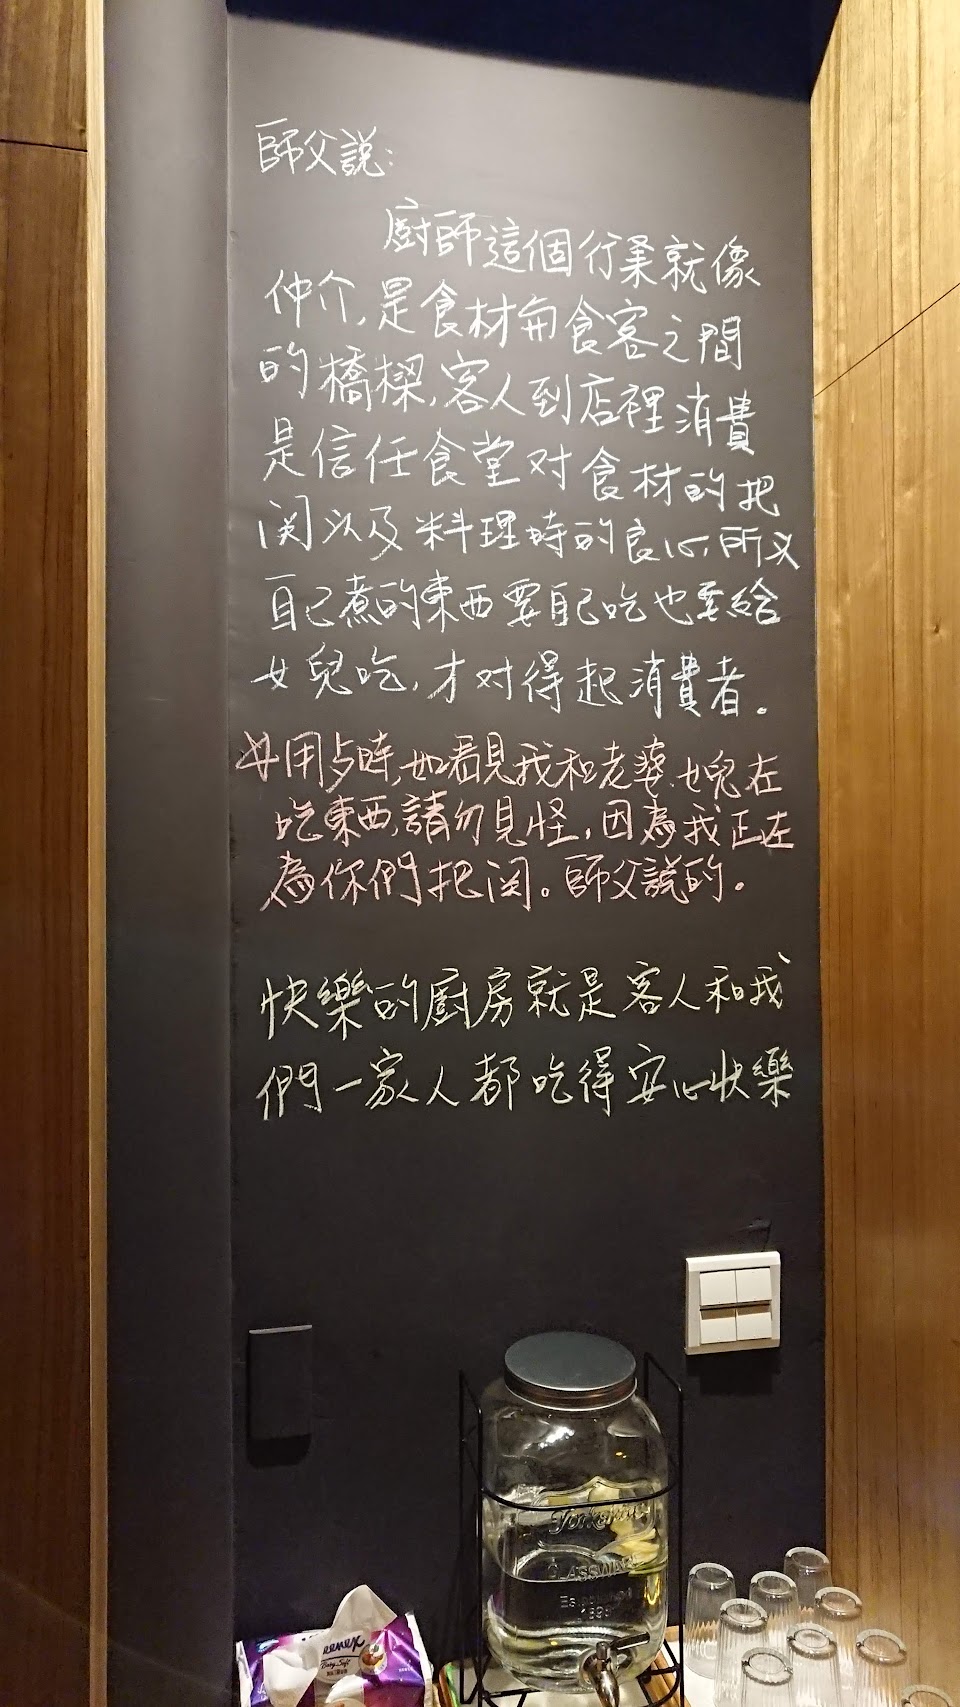 師父說:
廚師這個行業就像
仲介,是食材与食客之間
的橋樑,客人到店裡消費
是信任食堂对食材的把
関以及料理時的良心,所以
自己煮的東西要自己吃也要給
女兒吃,才对得起消費者。
用歺時,如看見我和老婆、女兒在
吃東西,請勿見怪,因為我正在
為你們把関。師父說的。
快樂的廚房就是客人和我
們一家人都吃得安心快樂
Yorkshire
GLASSWARE
Kleenex
Baby Soft